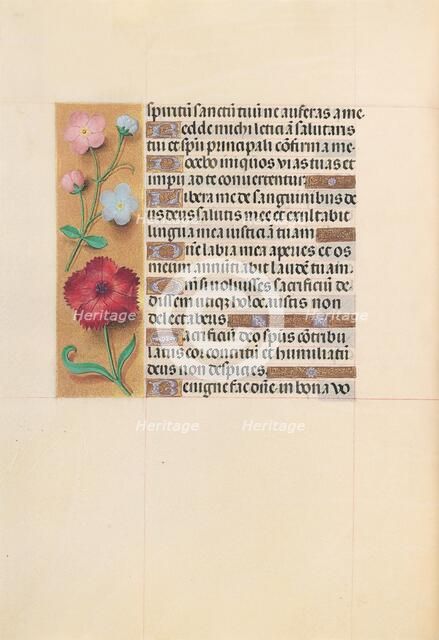 spiritū sanctū tuū ne auferas a me
Redde michi leticiā salutaris
tui et spū principali cōfirma me
Docebo iniquos vias tuas et
impii ad te convertentur
Libera me de sanguinibus de
us deus salutis mee et exultabit
lingua mea iusticiā tuam
Dn̄e labia mea aperies et os
meum annūtiabit laudē tuam
Qm̄ si voluisses sacrificiū de
dissem utiqz holocaustis non
delectaberis
Sacrificiū deo spūs cōtribu
latus cor contritū et humiliatū
deus non despicies
Benigne fac dn̄e in bona vo
Heritage Heritage
Heritage Heritage
Heritage Heritage